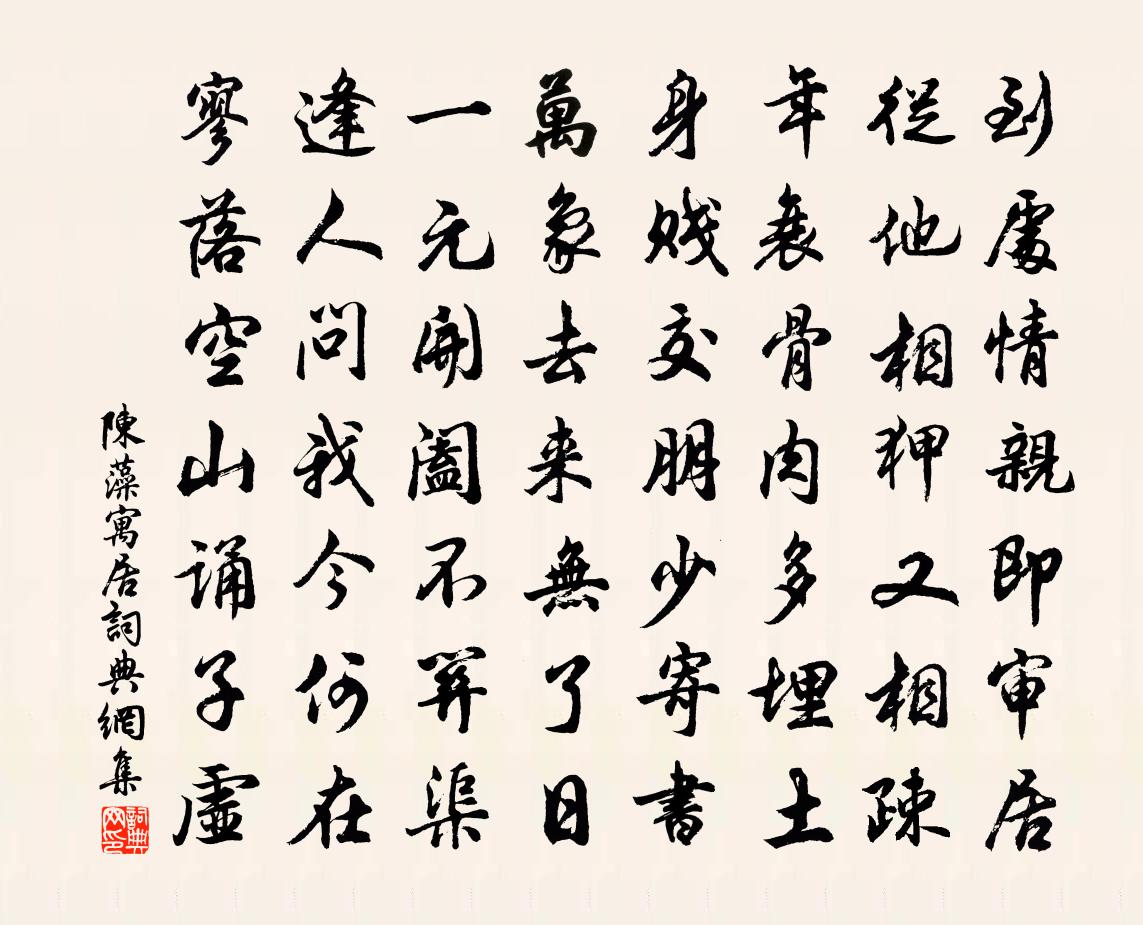 到處情親即审居
從他相狎又相疎
年衰骨肉多埋土
身賤交朋少寄書
萬象去来無了日
一元開闔不筭渠
逢人問我今何在
寥落空山誦子虛
陳藻寓居詞典網集
詞典网印